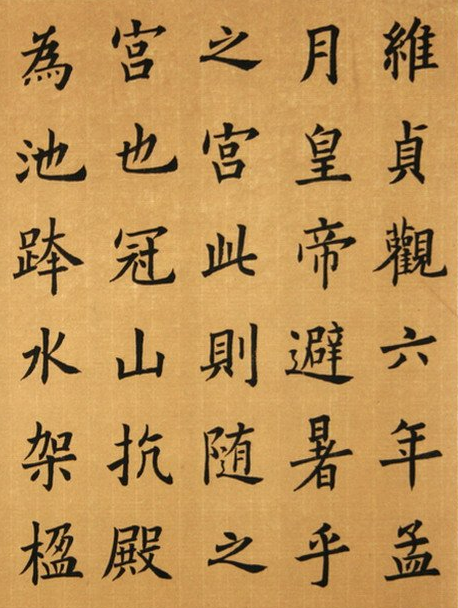 維貞觀六年孟
月皇帝避暑乎
之宮此則随之
宮也冠山抗殿
為池跨水架楹